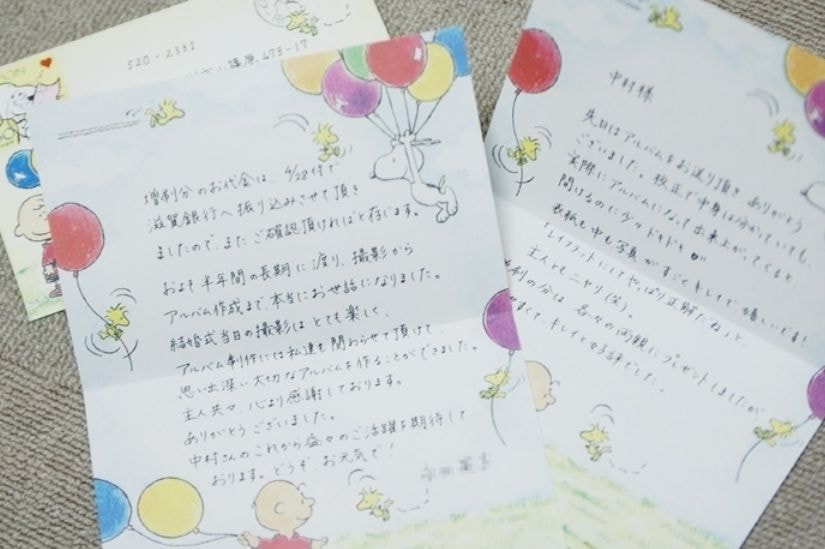 520-2331
473-17
中村様
先日はアルバムをお送り頂き ありがとう
ございました。校正で中身は分かっていても、
実際にアルバムになって出来上がってくると、
開けるのに少々ドキドキ
表紙も中も写真がすごくキレイで、嬉しいです!
「レイフラットにしてやっぱり正解だね」と、
主人ともニヤリ(笑)。
刷の分は、各々の両親にプレゼントしましたが
すくて、キレイと好評でした。
増刷分のお代金は、4/28付で
滋賀銀行へ振り込みさせて頂き
ましたので、またご確認頂ければと存じます。
およそ半年間の長期に渡り、撮影から
アルバム作成まで、本当にお世話になりました。
結婚式当日の撮影はとても楽しく、
アルバム制作には私達も関わらせて頂けて、
思い出深い大切なアルバムを作ることができました。
主人共々、心より感謝しております。
ありがとうございました。
中村さんのこれから益々のご活躍を期待して
おります。どうぞ、お元気で!